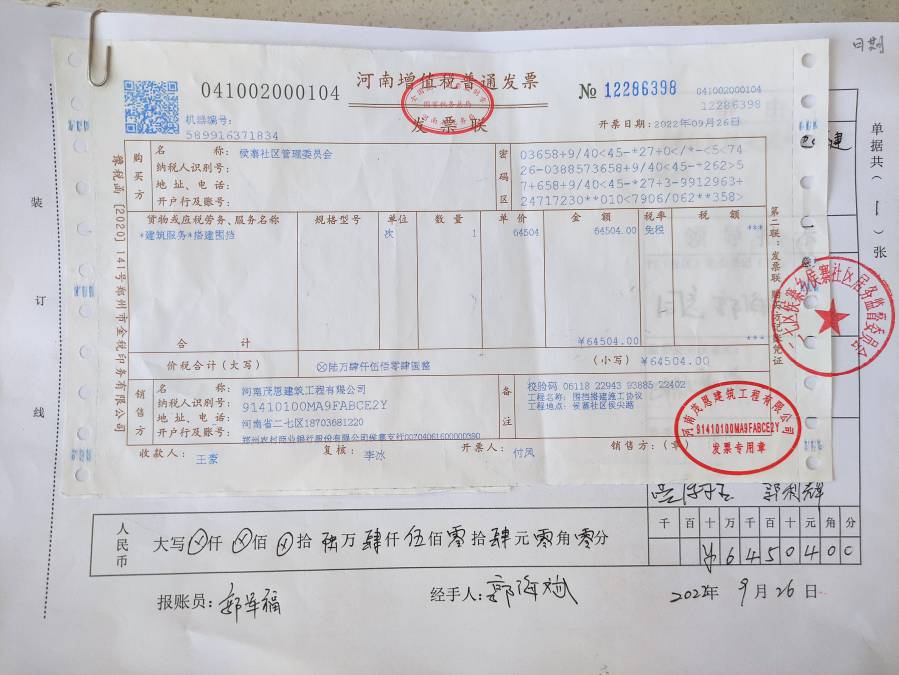 日期
041002000104
河南增值税普通发票
№ 12286398
041002000104
12286398
发票联
机器编号:
589916371834
开票日期: 2022年09月26日
单据共(一)张
装订线
豫税函[2020]141号郑州市金税印务有限公司
购买方
名称: 侯寨社区管理委员会
纳税人识别号:
地址、电话:
开户行及账号:
密码区
03658+9/40<45-*27+0</*-<5<74
26-0388573658+9/40<45-*262>5
7+658+9/40<45-*27+3-9912963+
24717230**010<7906/062**358>
货物或应税劳务、服务名称 规格型号 单位 数量 单价 金额 税率 税额
*建筑服务*搭建围挡 次 1 64504 64504.00 免税 ***
合计 ¥64504.00 ***
价税合计(大写) ⊗陆万肆仟伍佰零肆圆整 (小写) ¥64504.00
第二联:发票联 购买方记账凭证
二七区侯寨乡侯寨社区居务监督委员会
销售方
名称: 河南茂恩建筑工程有限公司
纳税人识别号: 91410100MA9FABCE2Y
地址、电话: 河南省二七区18703681220
开户行及账号: 郑州农村商业银行股份有限公司侯寨支行00704061600000390
备注
校验码 06118 22943 93885 22402
工程名称: 围挡搭建施工协议
工程地点: 侯寨社区侯尖路
收款人: 王豪 复核: 李冰 开票人: 付风 销售方:(章)
河南茂恩建筑工程有限公司
91410100MA9FABCE2Y
发票专用章
人民币
大写⊗仟⊗佰⊗拾陆万肆仟伍佰零拾肆元零角零分
千百十万千百十元角分
¥6450400
报账员: 郭军福 经手人: 郭海斌 2022年9月26日